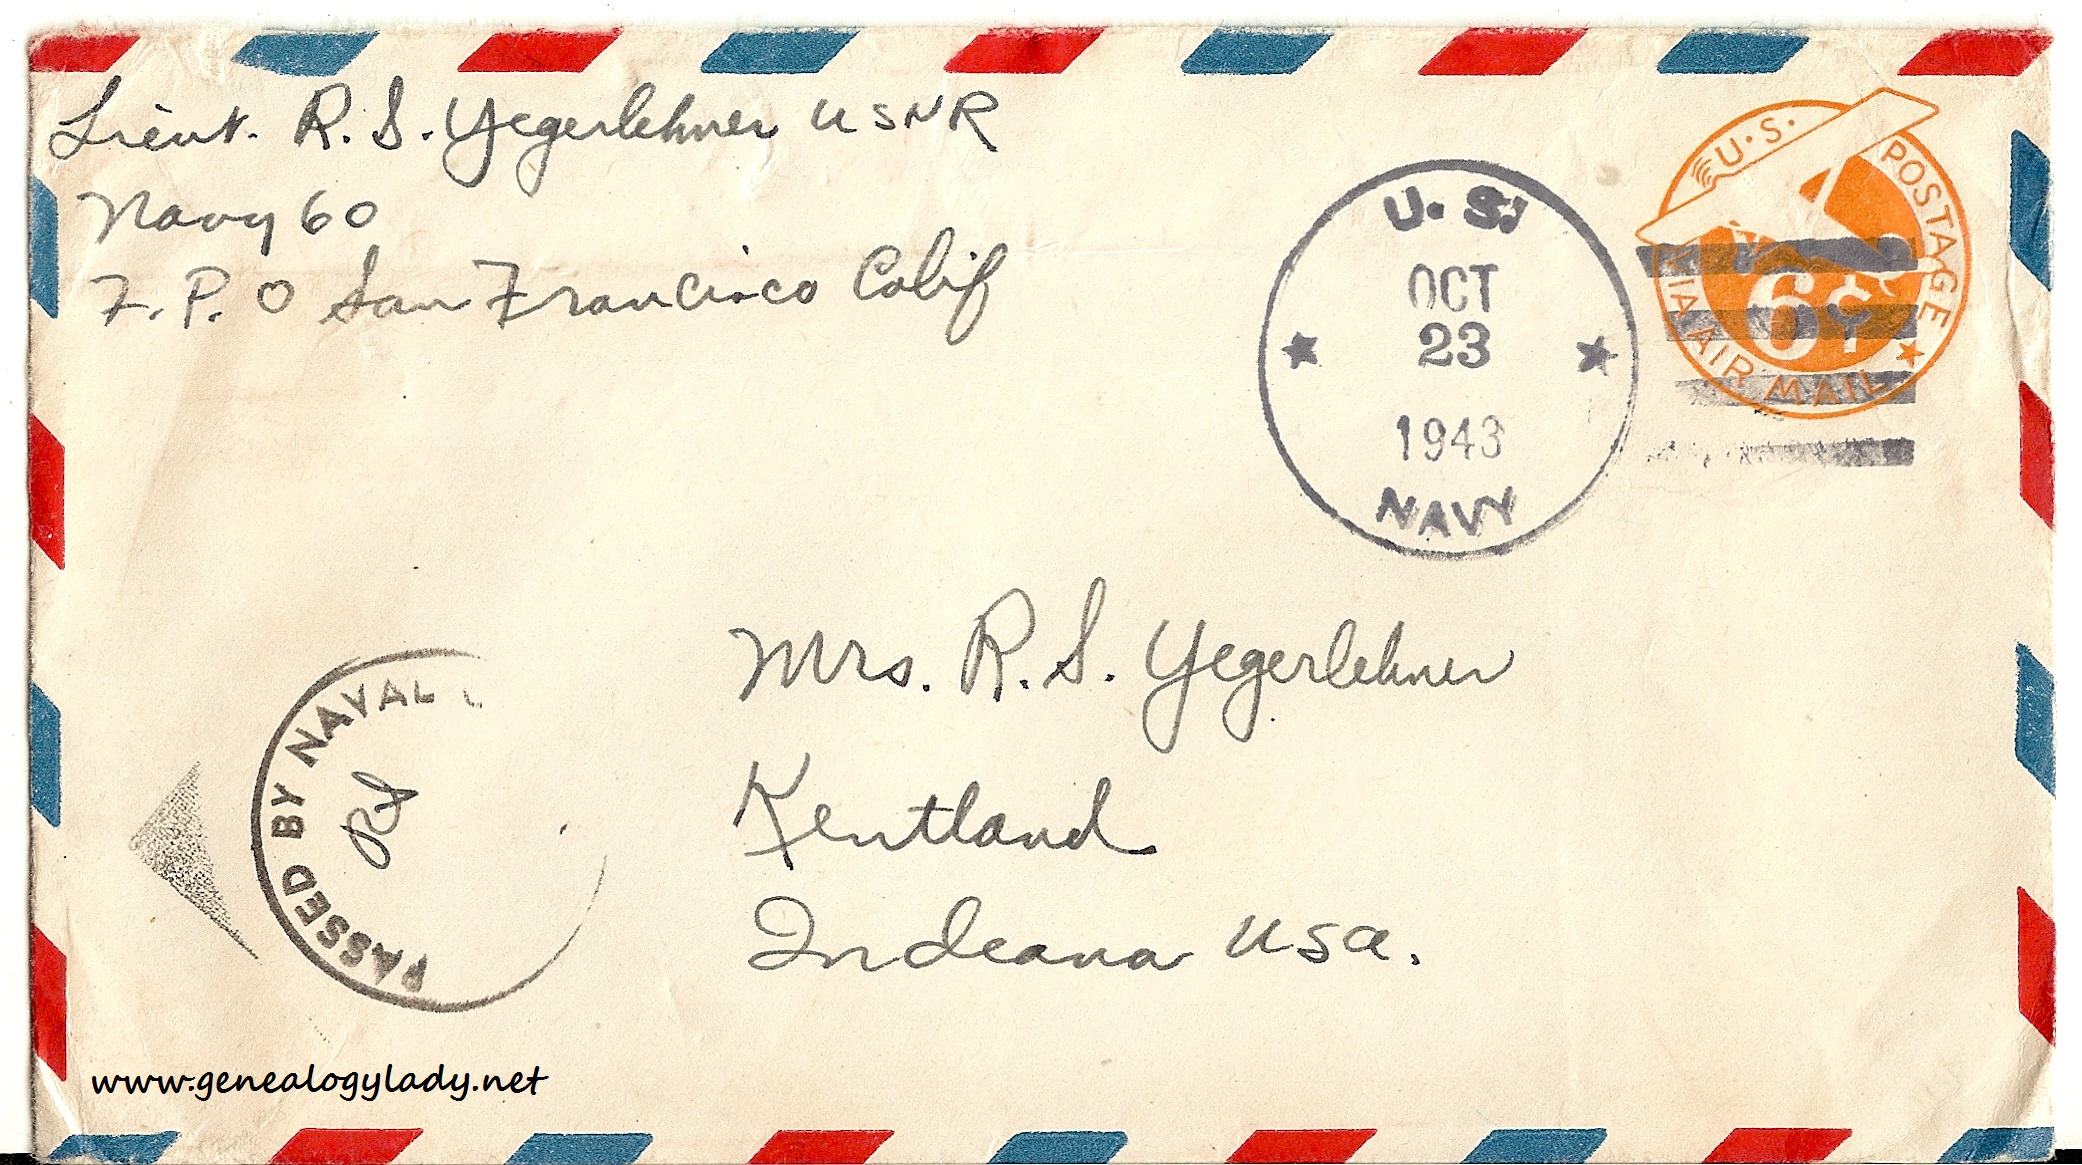 Lieut. R. S. Yegerlehner USNR
Navy 60
F. P. O San Francisco Calif
U. S.
OCT
23
1943
NAVY
U.S. POSTAGE
6¢
VIA AIR MAIL
Mrs. R. S. Yegerlehner
Kentland
Indiana USA.
PASSED BY NAVAL
www.genealogylady.net